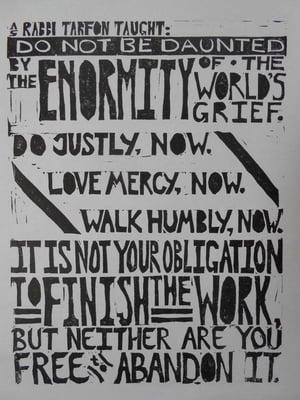 A RABBI TARFON TAUGHT:
DO NOT BE DAUNTED
BY THE ENORMITY OF • THE WORLD'S GRIEF.
DO JUSTLY, NOW.
LOVE MERCY, NOW.
WALK HUMBLY, NOW.
IT IS NOT YOUR OBLIGATION
TO FINISH THE WORK,
BUT NEITHER ARE YOU
FREE TO ABANDON IT.